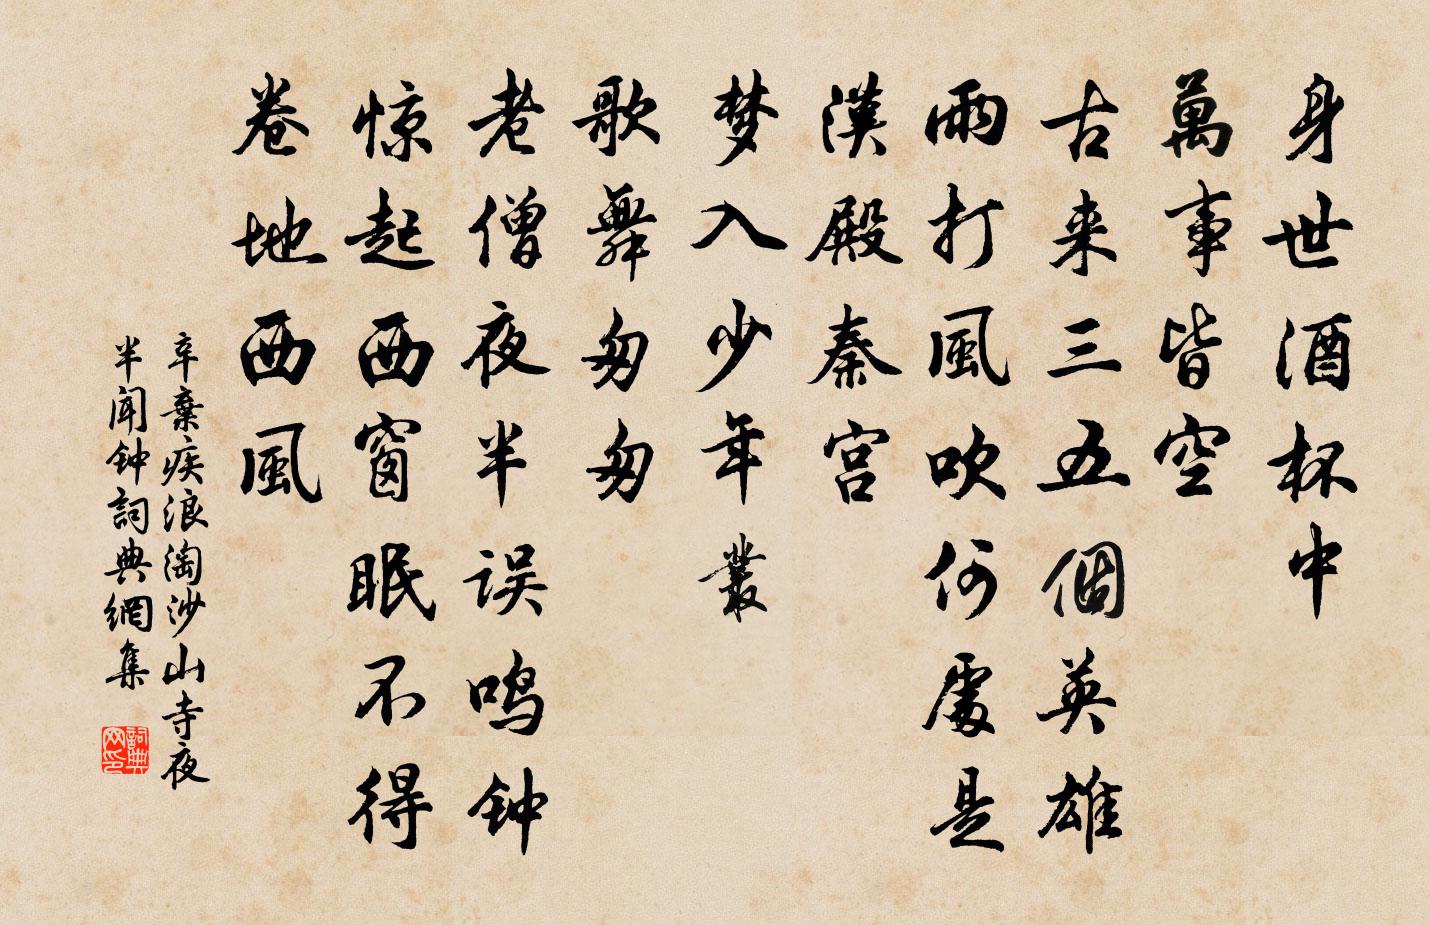 身世酒杯中
萬事皆空
古来三五個英雄
雨打風吹何處是
漢殿秦宫
梦入少年叢
歌舞匆匆
老僧夜半误鸣钟
惊起西窗眠不得
卷地西風
辛棄疾浪淘沙山寺夜
半闻钟詞典網集
詞典
网印